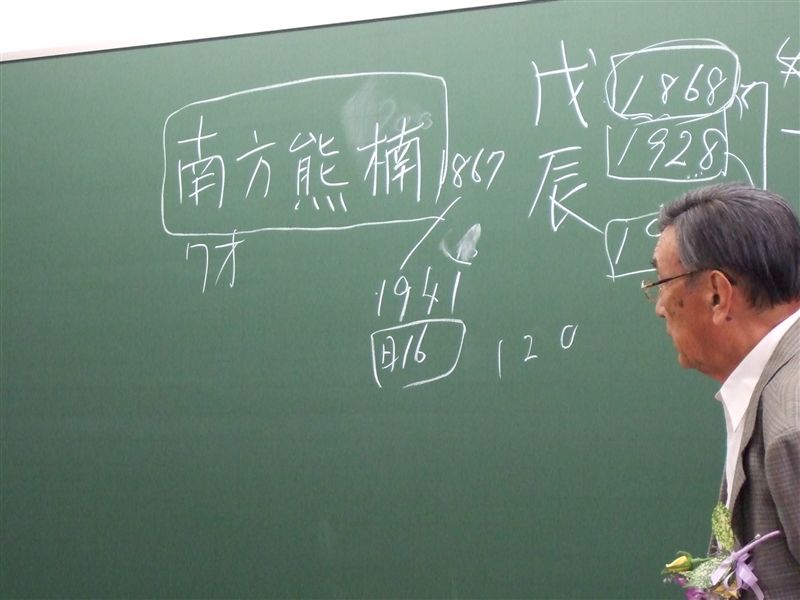 南方熊楠 1867
7才
1941
日16
120
戊辰
1868
1928